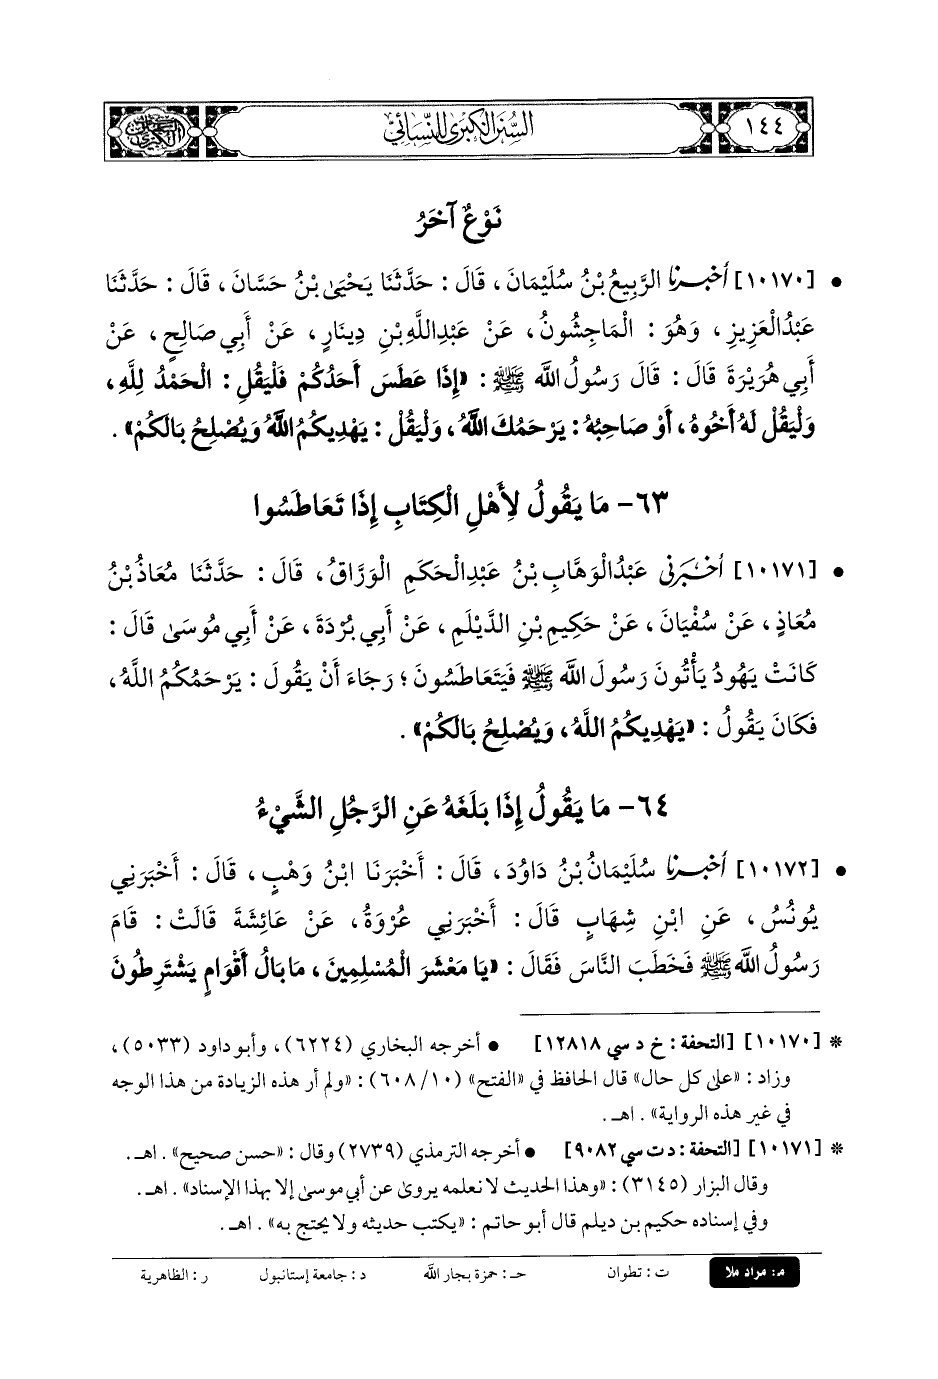 ١٤٤ السُّنَنُ الْكُبْرَى لِلنَّسَائِيِّ
نَوْعٌ آخَرُ
• [١٠١٧٠] أخبرنا الرَّبِيعُ بْنُ سُلَيْمَانَ، قَالَ: حَدَّثَنَا يَحْيَى بْنُ حَسَّانَ، قَالَ: حَدَّثَنَا
عَبْدُ الْعَزِيزِ، وَهُوَ: الْمَاجِشُونُ، عَنْ عَبْدِ اللَّهِ بْنِ دِينَارٍ، عَنْ أَبِي صَالِحٍ، عَنْ
أَبِي هُرَيْرَةَ قَالَ: قَالَ رَسُولُ اللَّه ﷺ: «إِذَا عَطَسَ أَحَدُكُمْ فَلْيَقُلِ: الْحَمْدُ لِلَّهِ،
وَلْيَقُلْ لَهُ أَخُوهُ، أَوْ صَاحِبُهُ: يَرْحَمُكَ اللَّهُ، وَلْيَقُلْ: يَهْدِيكُمُ اللَّهُ وَيُصْلِحُ بَالَكُمْ».
٦٣- مَا يَقُولُ لِأَهْلِ الْكِتَابِ إِذَا تَعَاطَسُوا
• [١٠١٧١] أخبرني عَبْدُ الْوَهَّابِ بْنُ عَبْدِ الْحَكَمِ الْوَرَّاقُ، قَالَ: حَدَّثَنَا مُعَاذُ بْنُ
مُعَاذٍ، عَنْ سُفْيَانَ، عَنْ حَكِيمِ بْنِ الدَّيْلَمِ، عَنْ أَبِي بُرْدَةَ، عَنْ أَبِي مُوسَى قَالَ:
كَانَتْ يَهُودُ يَأْتُونَ رَسُولَ اللَّه ﷺ فَيَتَعَاطَسُونَ؛ رَجَاءَ أَنْ يَقُولَ: يَرْحَمُكُمُ اللَّهُ،
فَكَانَ يَقُولُ: «يَهْدِيكُمُ اللَّهُ، وَيُصْلِحُ بَالَكُمْ».
٦٤- مَا يَقُولُ إِذَا بَلَغَهُ عَنِ الرَّجُلِ الشَّيْءُ
• [١٠١٧٢] أخبرنا سُلَيْمَانُ بْنُ دَاوُدَ، قَالَ: أَخْبَرَنَا ابْنُ وَهْبٍ، قَالَ: أَخْبَرَنِي
يُونُسُ، عَنِ ابْنِ شِهَابٍ قَالَ: أَخْبَرَنِي عُرْوَةُ، عَنْ عَائِشَةَ قَالَتْ: قَامَ
رَسُولُ اللَّه ﷺ فَخَطَبَ النَّاسَ فَقَالَ: «يَا مَعْشَرَ الْمُسْلِمِينَ، مَا بَالُ أَقْوَامٍ يَشْتَرِطُونَ
* [١٠١٧٠] [التحفة: خ د سي ١٢٨١٨] • أخرجه البخاري (٦٢٢٤)، وأبو داود (٥٠٣٣)،
وزاد: «على كل حال» قال الحافظ في «الفتح» (١٠/ ٦٠٨): «ولم أر هذه الزيادة من هذا الوجه
في غير هذه الرواية». اهـ.
* [١٠١٧١] [التحفة: د ت سي ٩٠٨٢] • أخرجه الترمذي (٢٧٣٩) وقال: «حسن صحيح». اهـ.
وقال البزار (٣١٤٥): «وهذا الحديث لا نعلمه يروى عن أبي موسى إلا بهذا الإسناد». اهـ.
وفي إسناده حكيم بن ديلم قال أبو حاتم: «يكتب حديثه ولا يحتج به». اهـ.
م: مراد ملا ت: تطوان حـ: حمزة بجار الله د: جامعة إستانبول ر: الظاهرية